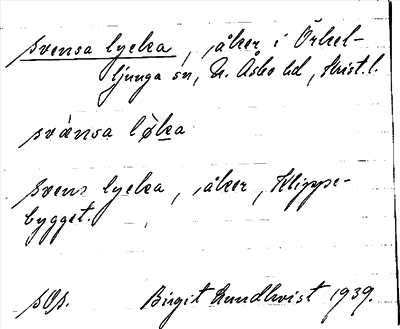 svensa lycka, åker i Örkel-
ljunga sn, N. Åsbo hd, Krist. l.
svänsa løka
svens lycka, åker, Klippe-
bygget.
Birgit Lundkvist 1939.